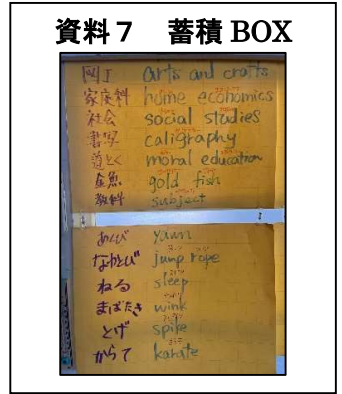 資料７ 蓄積 BOX
図工 arts and crafts
家庭科 home economics
社会 social studies
書写 caligraphy
道とく moral education
金魚 gold fish
教科 subject
あくび yawn
なわとび jump rope
ねる sleep
まばたき wink
とげ spike
からて karate